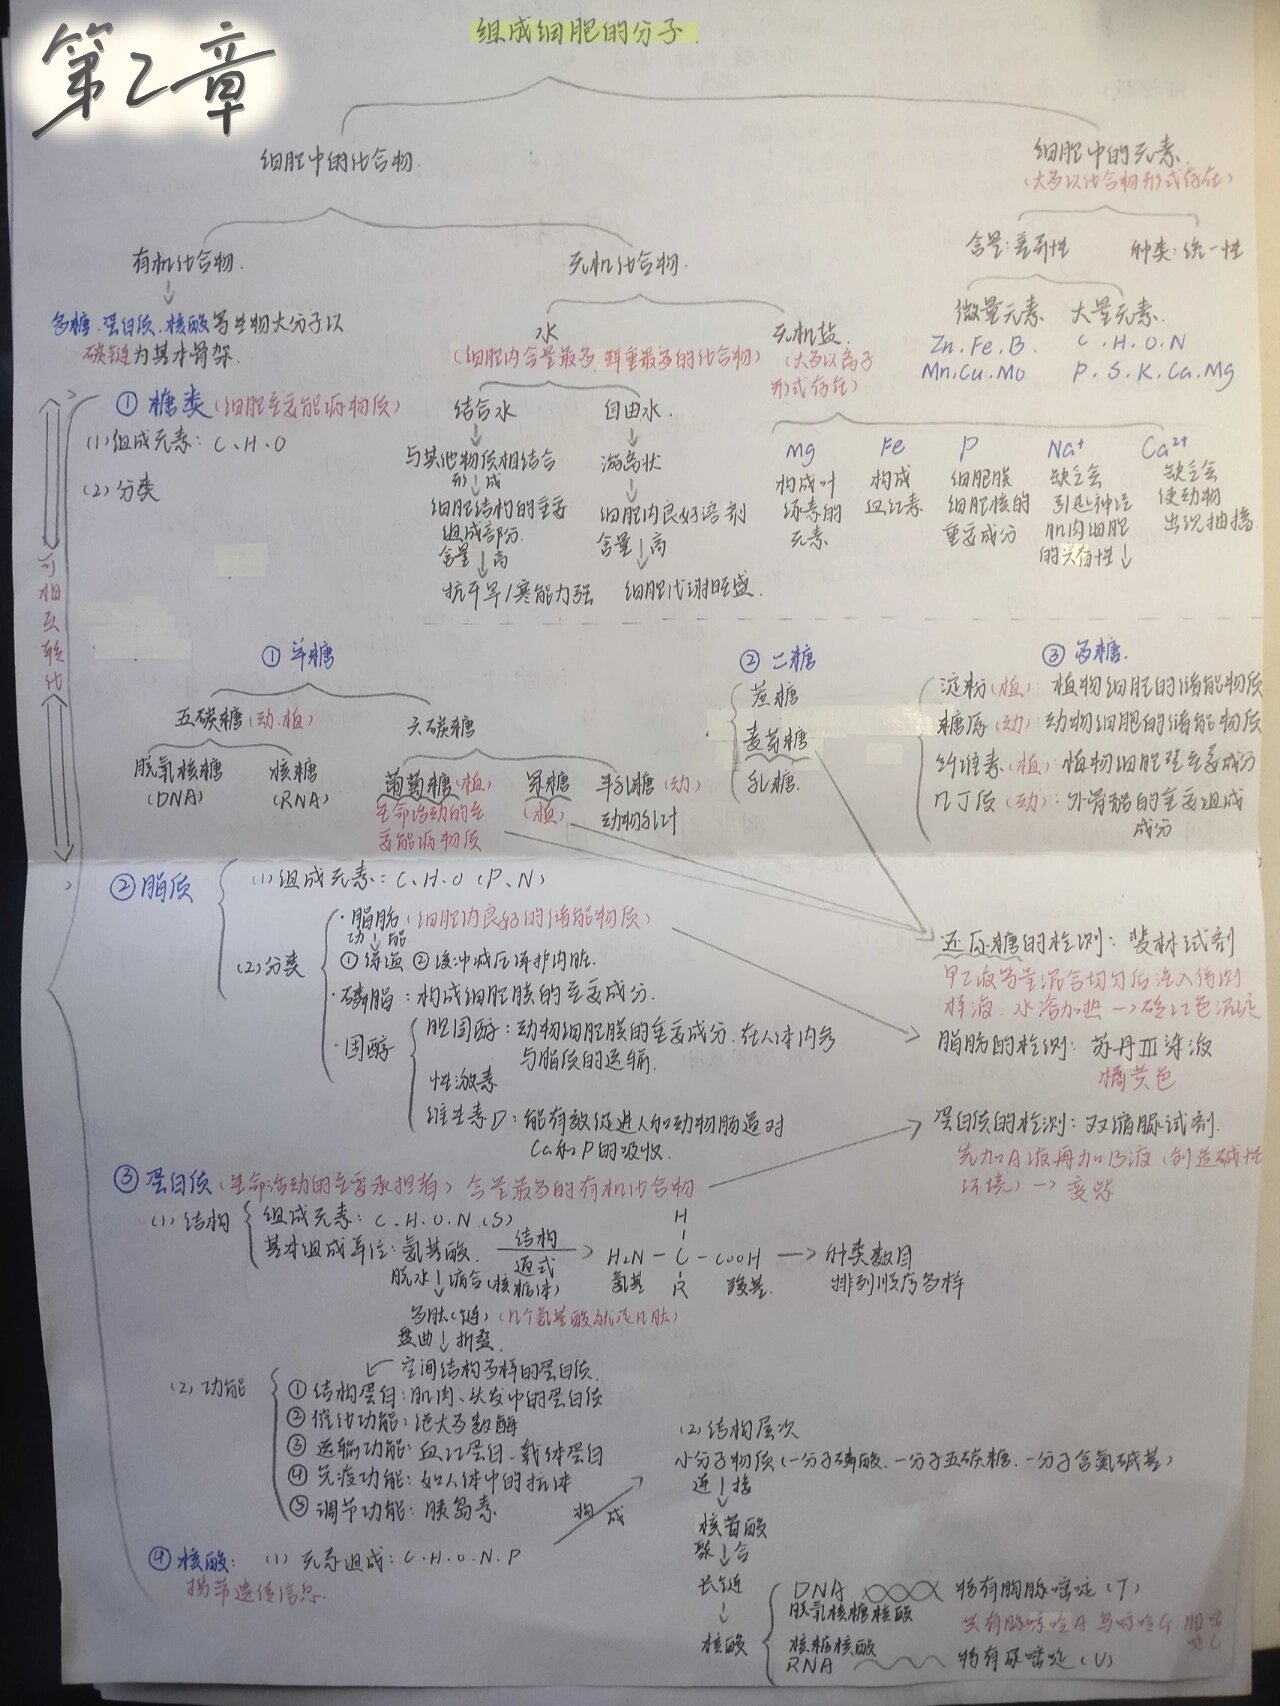 第2章
组成细胞的分子.
细胞中的化合物.
细胞中的元素.
(大多以化合物形式存在)
有机化合物.
无机化合物.
含量:差异性
种类:统一性
多糖.蛋白质.核酸等生物大分子以
碳链为基本骨架.
水
(细胞内含量最多,鲜重最多的化合物)
无机盐
(大多以离子
形式存在)
微量元素
Zn.Fe.B.
Mn.Cu.Mo
大量元素.
C.H.O.N
P.S.K.Ca.Mg
结合水
↓
与其他物质相结合
形↓成
细胞结构的重要
组成部分.
含量↓高
抗干旱/寒能力强
自由水.
↓
游离状
↓
细胞内良好溶剂
含量↓高
细胞代谢旺盛.
Mg
构成叶
绿素的
元素
Fe
构成
血红素
P
细胞膜
细胞核的
重要成分
Na⁺
缺乏会
引起神经
肌肉细胞
的兴奋性↓
Ca²⁺
缺乏会
使动物
出现抽搐.
①糖类(细胞主要能源物质)
(1)组成元素:C.H.O
(2)分类
可相互转化
①单糖
五碳糖(动.植)
脱氧核糖
(DNA)
核糖
(RNA)
六碳糖
葡萄糖(植)
生命活动的主
要能源物质
果糖
(植)
半乳糖(动)
动物乳汁
②二糖
蔗糖
麦芽糖
乳糖.
③多糖.
淀粉(植):植物细胞的储能物质
糖原(动):动物细胞的储能物质
纤维素(植):植物细胞壁主要成分
几丁质(动):外骨骼的重要组成
成分
②脂质
(1)组成元素:C.H.O(P.N)
(2)分类
·脂肪(细胞内良好的储能物质)
功↓能
①保温②缓冲减压保护内脏.
·磷脂:构成细胞膜的重要成分.
·固醇
胆固醇:动物细胞膜的重要成分.在人体内参
与脂质的运输.
性激素
维生素D:能有效促进人和动物肠道对
Ca和P的吸收.
·还原糖的检测:斐林试剂
甲乙液等量混合均匀后注入待测
样液.水浴加热→砖红色沉淀
脂肪的检测:苏丹Ⅲ染液
橘黄色
蛋白质的检测:双缩脲试剂.
先加A液再加B液(创造碱性
环境)→变紫
③蛋白质(生命活动的主要承担者)含量最多的有机化合物
(1)结构
组成元素:C.H.O.N.(S)
基本组成单位:氨基酸.
结构
通式
H
H₂N-C-COOH
氨基 R 羧基.
→种类数目
排列顺序多样
脱水↓缩合(核糖体)
多肽(链)(几个氨基酸就是几肽)
盘曲↓折叠.
空间结构多样的蛋白质.
(2)功能
①结构蛋白:肌肉、头发中的蛋白质
②催化功能:绝大多数酶
③运输功能:血红蛋白.载体蛋白
④免疫功能:如人体中的抗体
⑤调节功能:胰岛素
④核酸:(1)元素组成:C.H.O.N.P
携带遗传信息.
构成
(2)结构层次
小分子物质(一分子磷酸.一分子五碳糖.一分子含氮碱基)
连↓接
核苷酸
聚↓合
长链
↓
核酸
DNA 特有胸腺嘧啶(T)
脱氧核糖核酸
共有腺嘌呤A 鸟嘌呤G 胞嘧
啶C
核糖核酸
RNA 特有尿嘧啶(U)